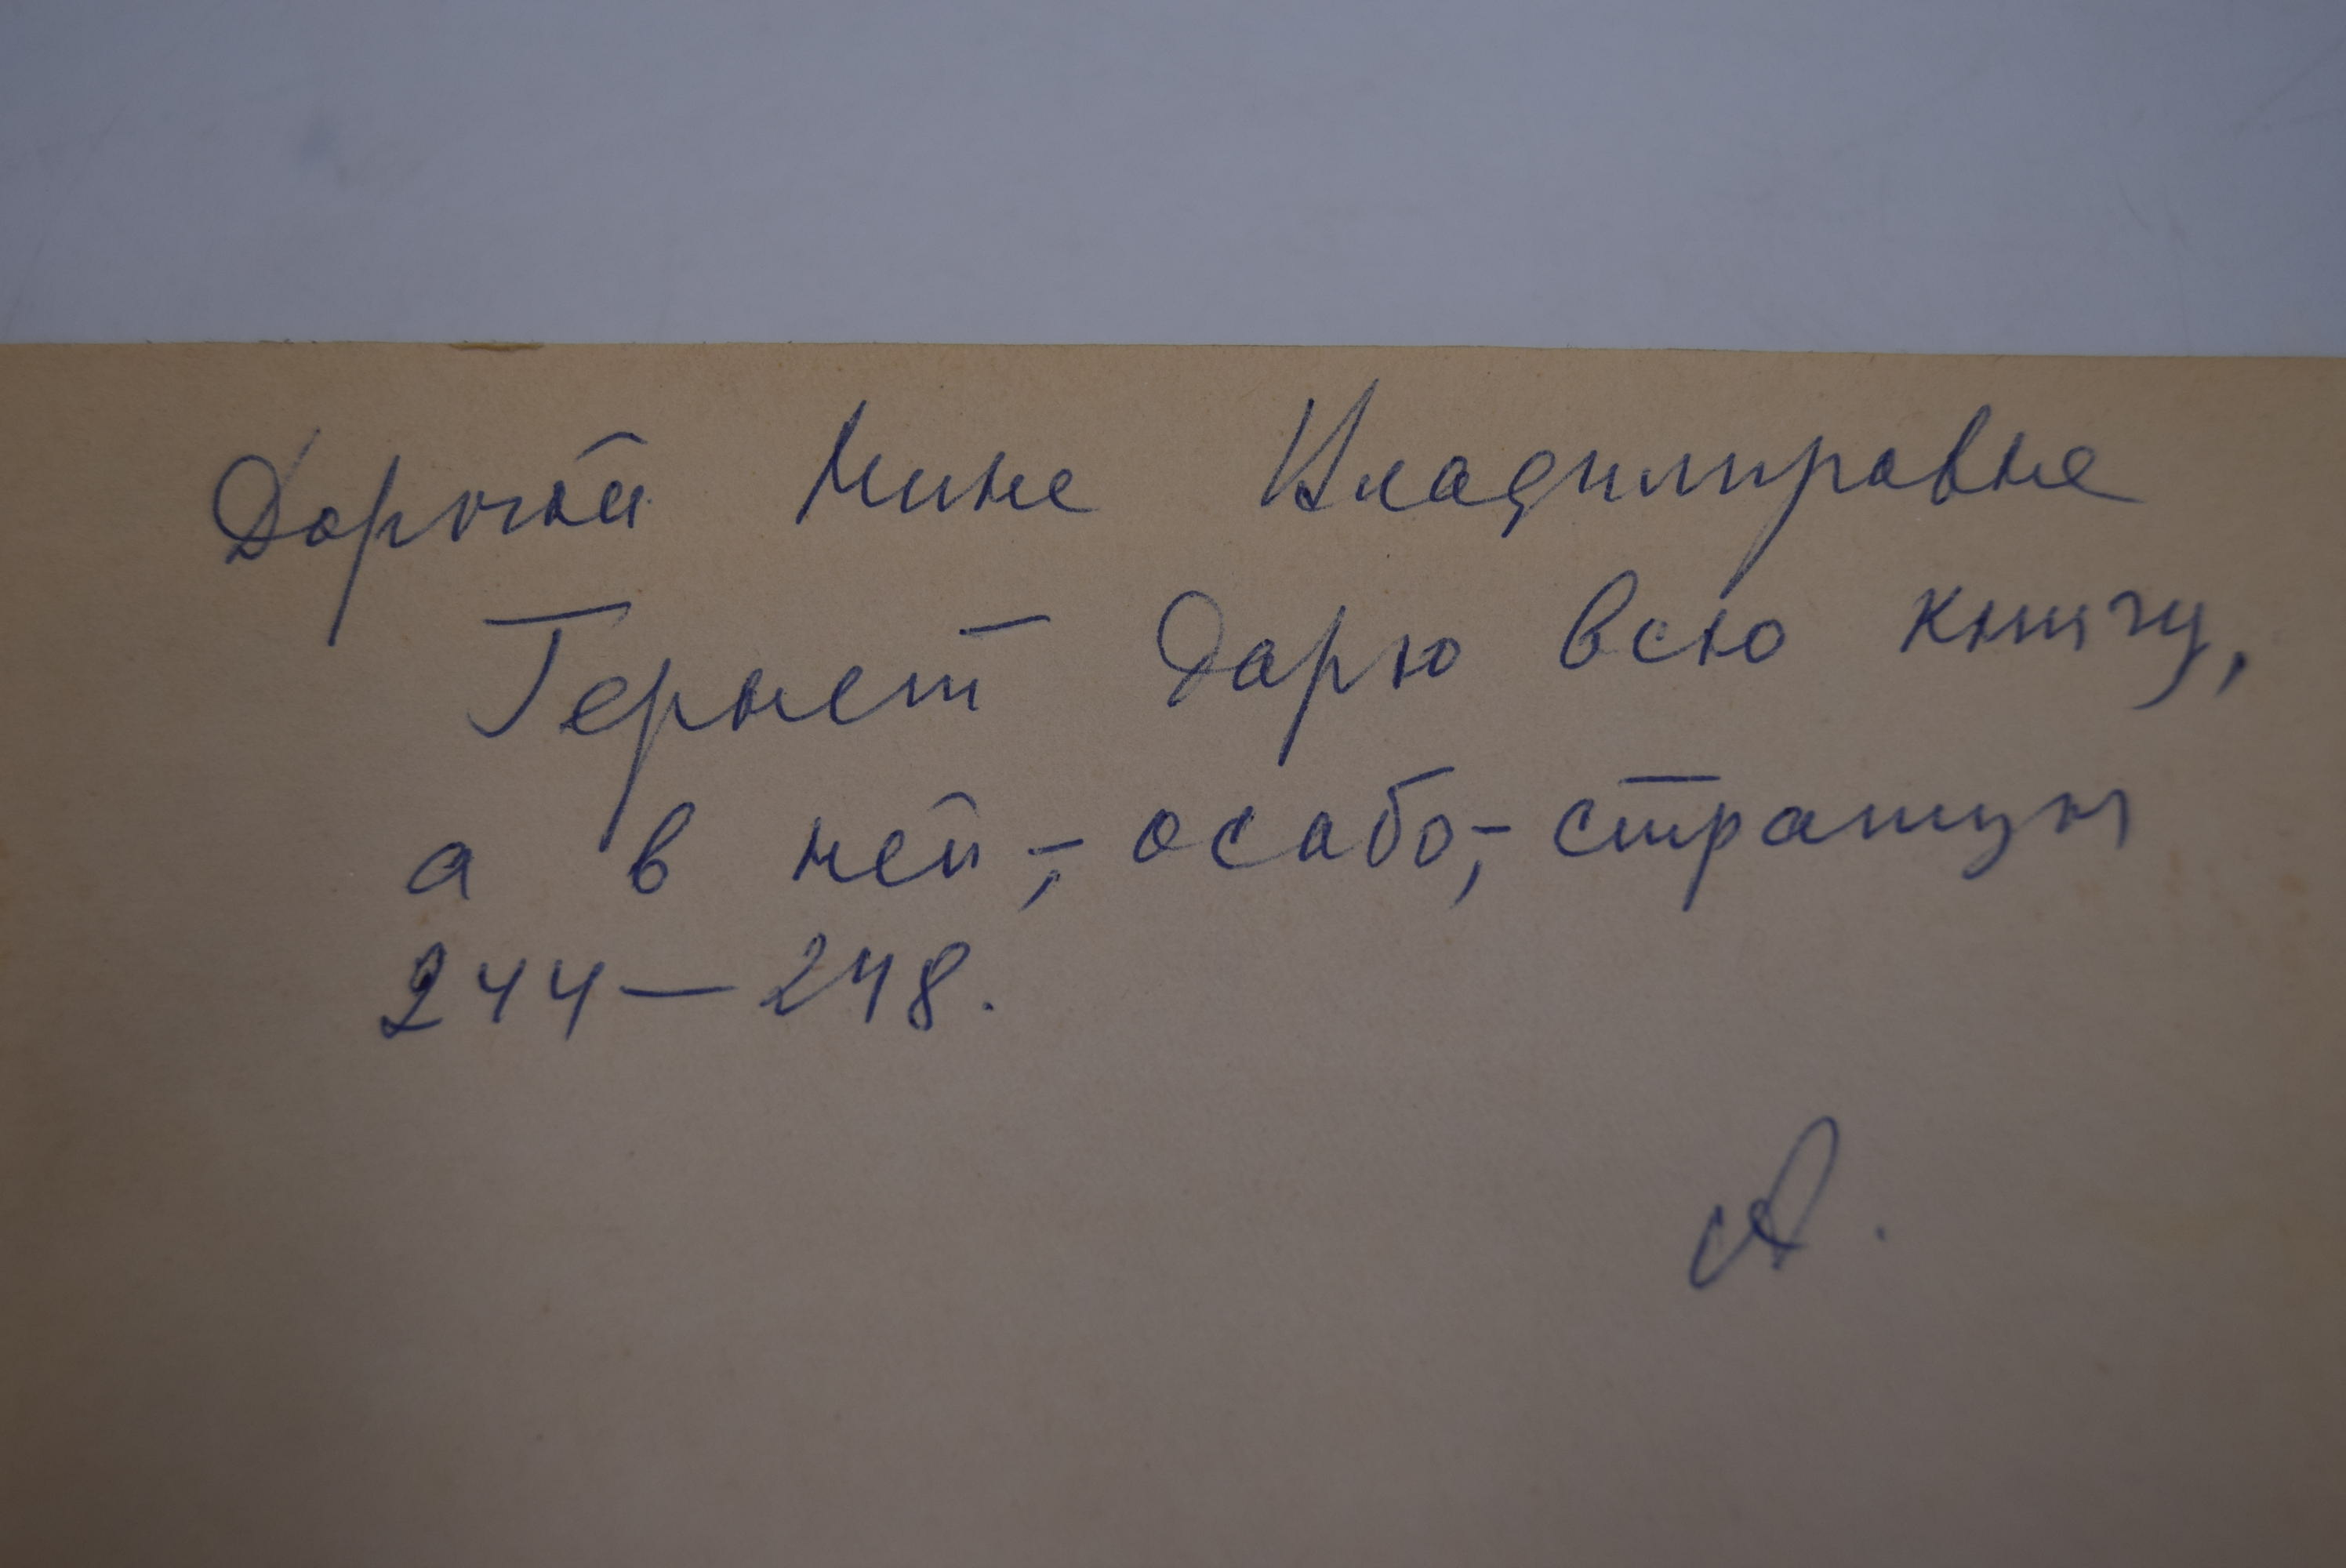 Дорогой Нине Владимировне
Гернет дарю всю книгу,
а в ней,- особо,- страницы
244—248.
А.